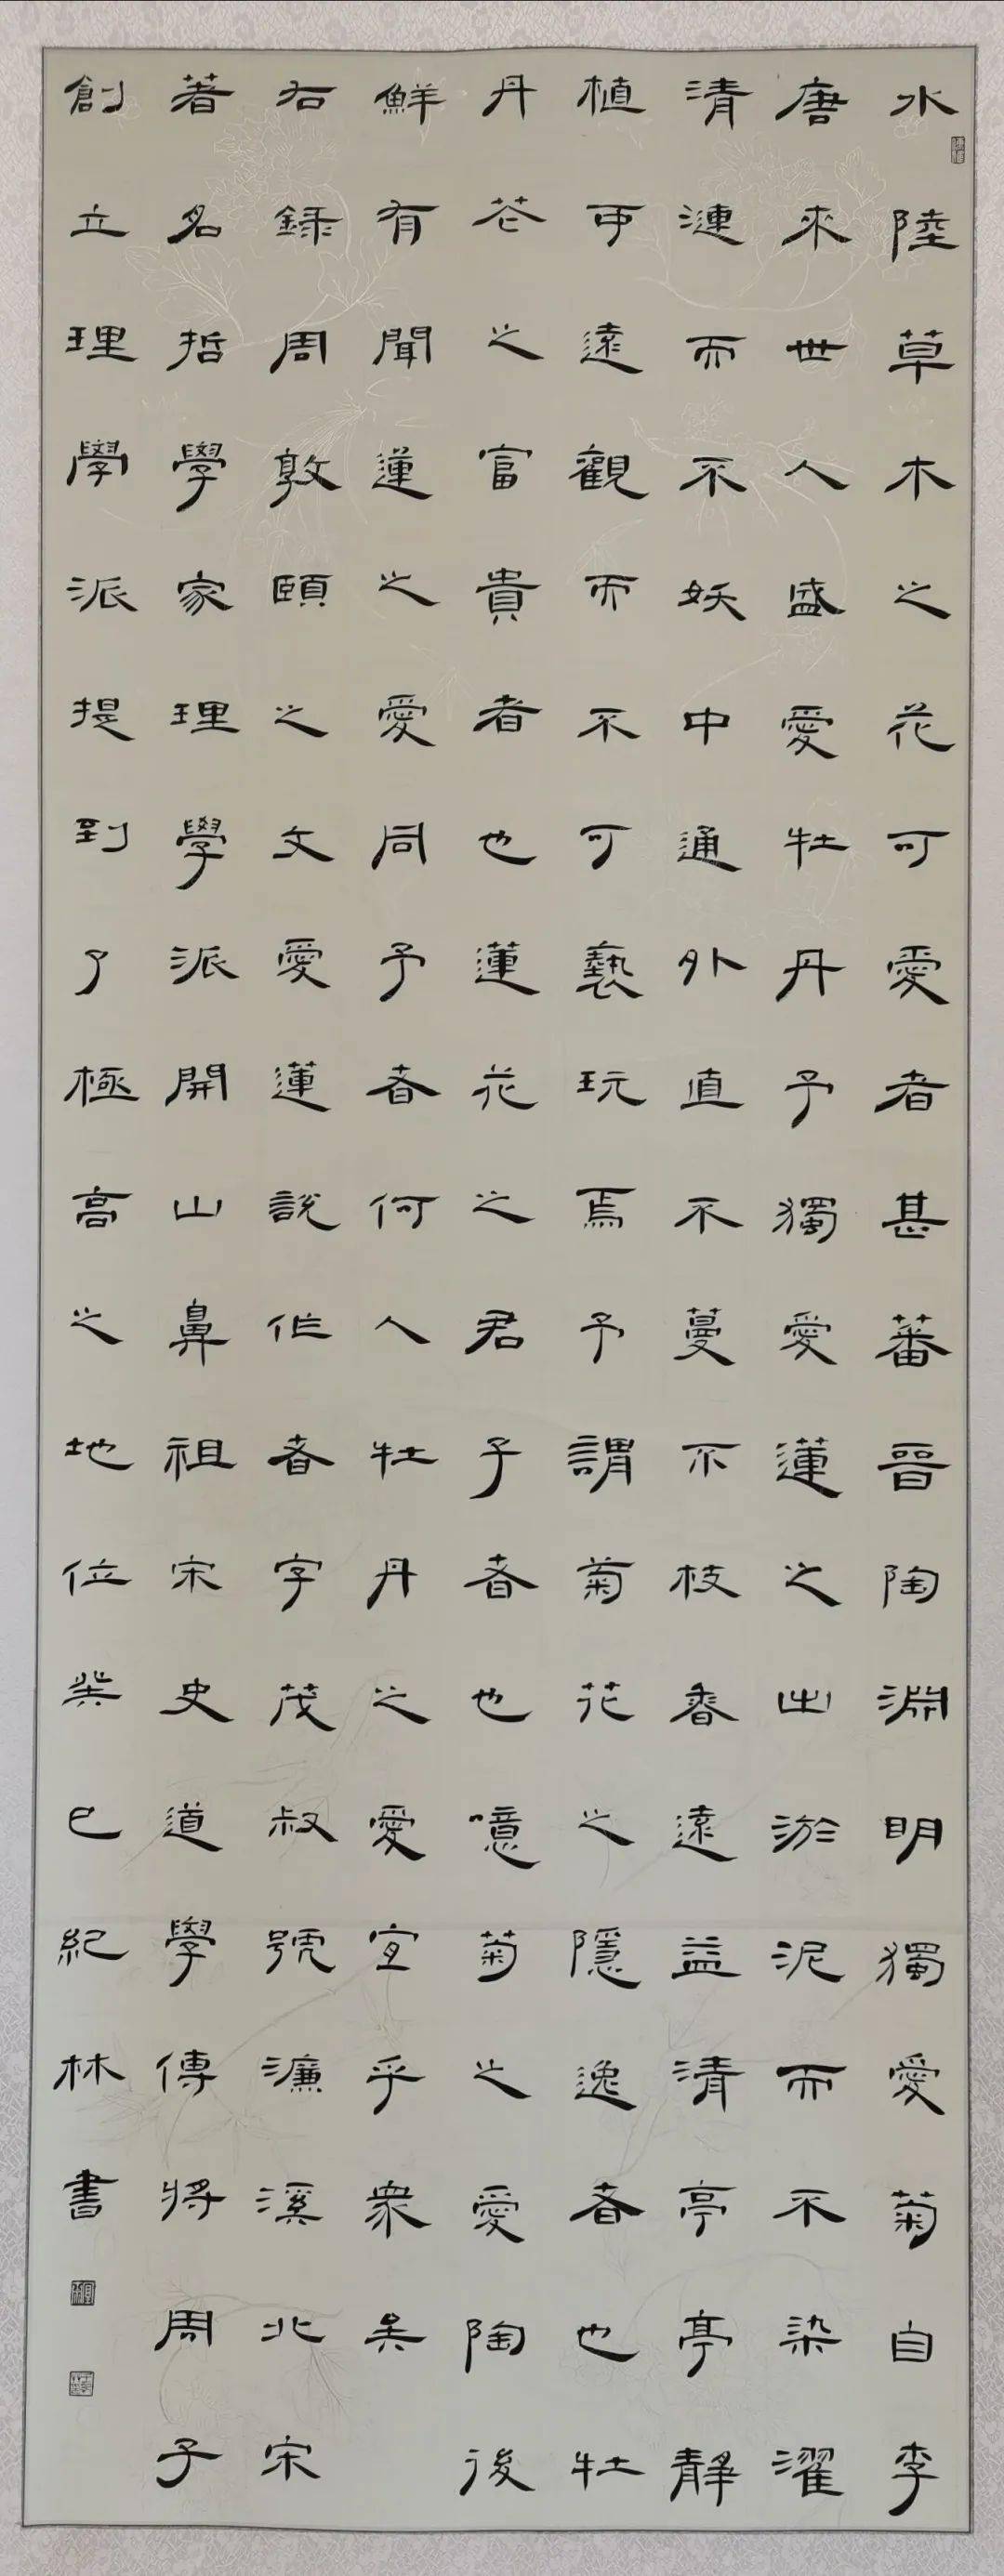 水陸草木之花可愛者甚蕃晉陶淵明獨愛菊自李
唐來世人盛愛牡丹予獨愛蓮之出淤泥而不染濯
清漣而不妖中通外直不蔓不枝香遠益清亭亭靜
植可遠觀而不可褻玩焉予謂菊花之隱逸者也牡
丹花之富貴者也蓮花之君子者也噫菊之愛陶後
鮮有聞蓮之愛同予者何人牡丹之愛宜乎衆矣
右録周敦頤之文愛蓮説作者字茂叔號濂溪北宋
著名哲學家理學派開山鼻祖宋史道學傳將周子
創立理學派提到了極高之地位癸巳紀林書